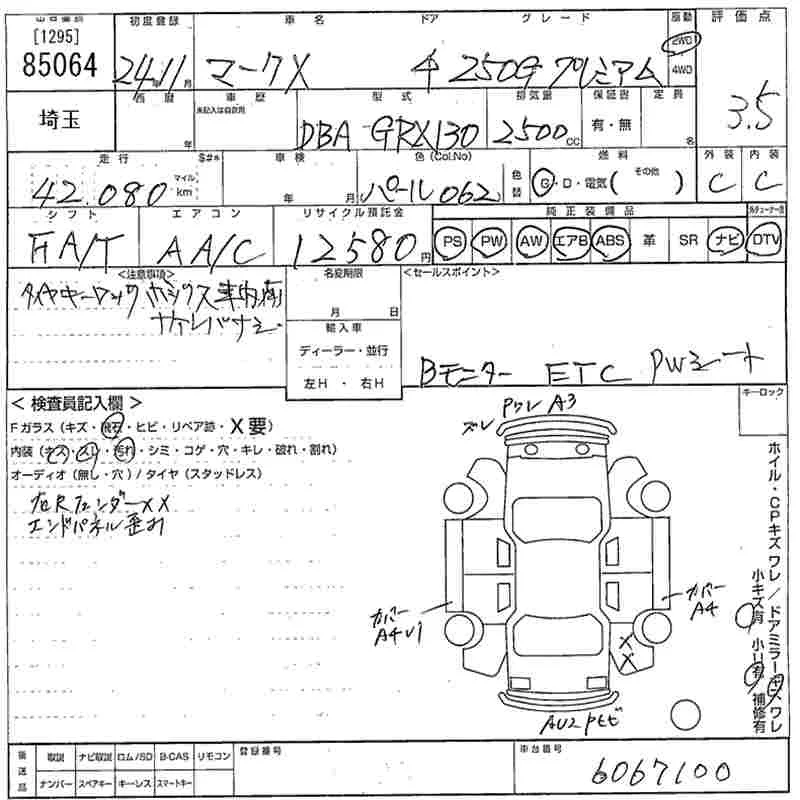 [1295]
85064
埼玉
初度登録
24年11月
車名
マークX
ドア
4
グレード
250G プレミアム
駆動
2WD
4WD
評価点
3.5
車歴
未記入は自家用
型式
DBA GRX130
排気量
2500 CC
保証書
有・無
定員
名
走行
42,080
マイル
km
S#*
車検
年 月
色(Col.No)
パール 062
色替
燃料
G・D・電気( その他 )
外装
C
内装
C
シフト
FA/T
エアコン
AA/C
リサイクル預託金
12580円
純正装備品
PS PW AW エアB ABS 革 SR ナビ DTV
<注意事項>
名変期限
月 日
輸入車
ディーラー・並行
左H・右H
<セールスポイント>
Bモニター ETC PWシート
<検査員記入欄>
Fガラス(キズ・飛石・ヒビ・リペア跡・X要)
内装(キズ・スレ・汚れ・シミ・コゲ・穴・キレ・破れ・割れ)
オーディオ(無し・穴)/タイヤ(スタッドレス)
右Rフェンダー XX
エンドパネル歪み
ズレ
Pワレ A3
カバー
A4U1
カバー
A4
X
X
キーロック
ホイル・CPキズ ワレ/ドアミラーキズ、ワレ
小キズ有 小U有 補修有
後送品
取説 ナビ取説 ロム/SD B-CAS リモコン
ナンバー スペアキー キーレス スマートキー
登録番号
車台番号
6067100